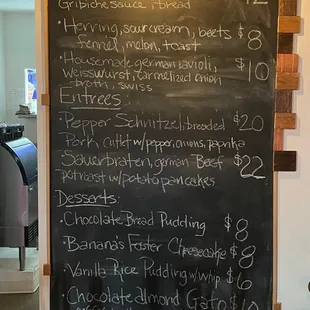 Gribiche sauce, bread 12
· Herring, sour cream, beets $8
fennel, melon, toast
· Housemade german ravioli, $10
weisswurst, carmelized onion
broth, swiss
Entrees:
· Pepper Schnitzel, breaded $20
Pork, cutlet w/pepper, onions, paprika
· Sauerbraten, german Beef $22
potroast w/potato pancakes
Desserts:
· Chocolate Bread Pudding $8
· Bananas Foster Cheesecake $8
· Vanilla Rice Pudding w/whip $6
· Chocolate almond Gato $10